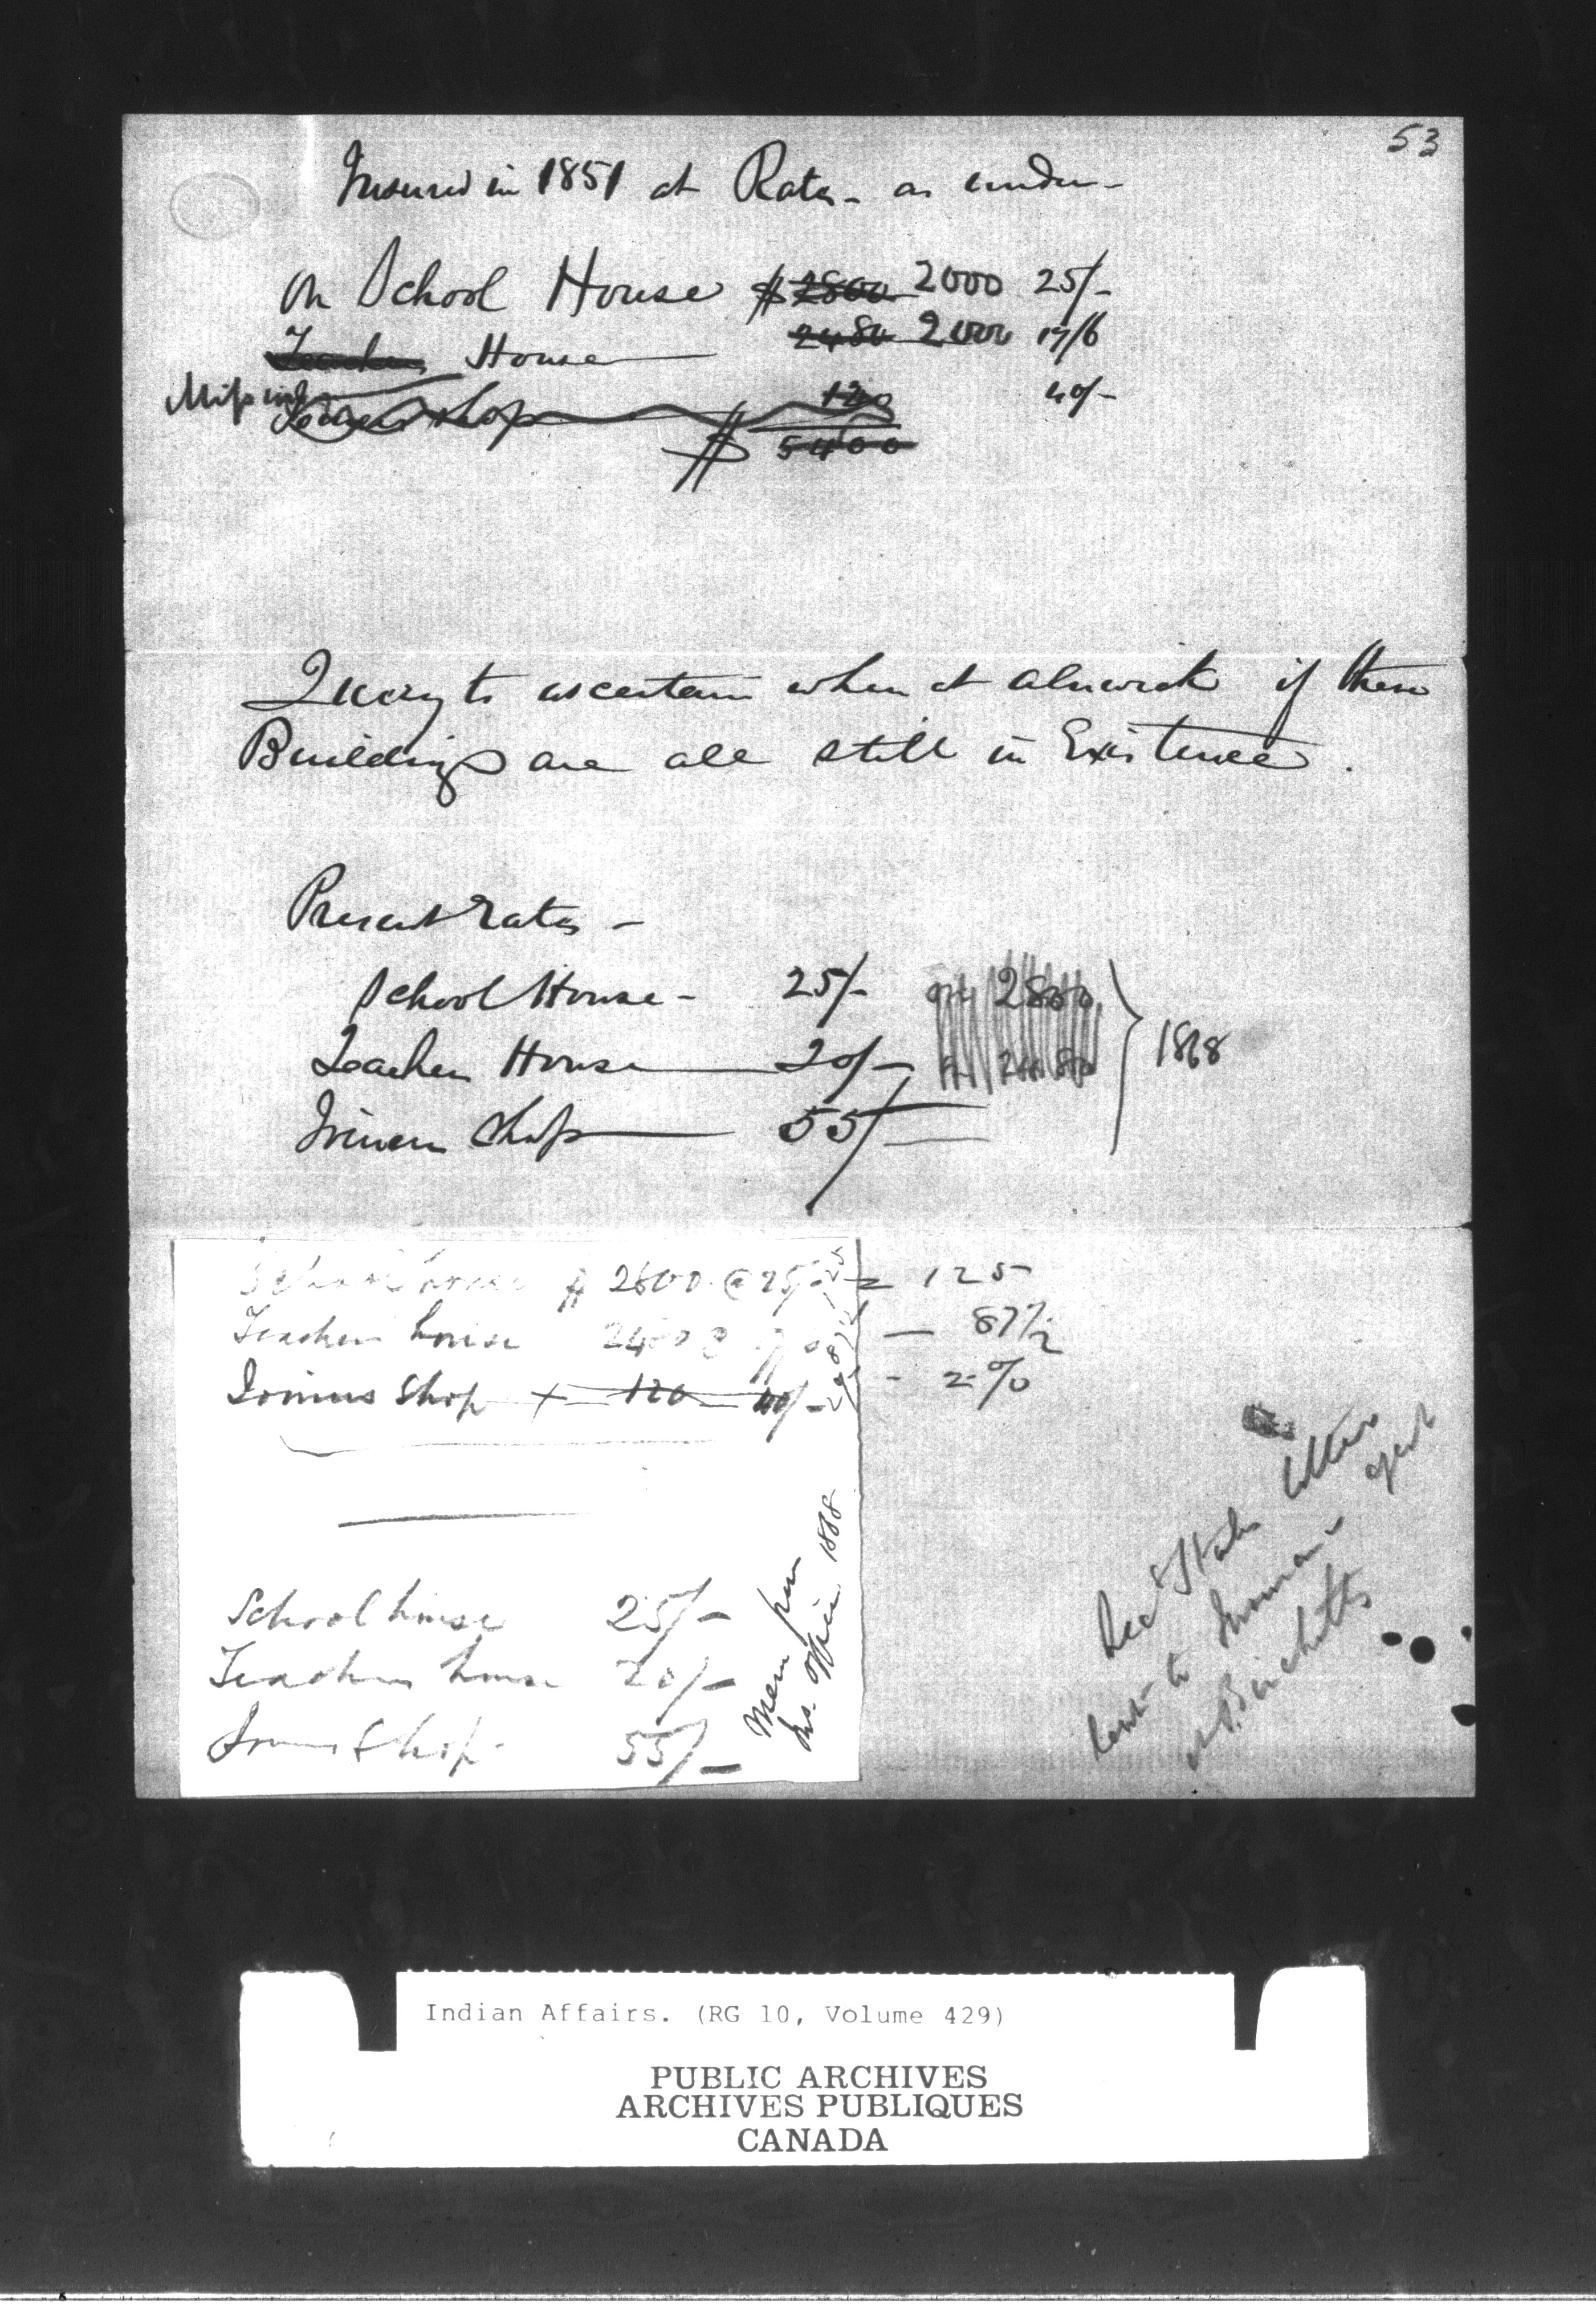 53
Insured in 1851 at Rates - as under -
On School House $ 2800 2000 25/-
Teachers House 2480 2000 17/6
Mission
Shop 120 40/-
$ 5400
Query to ascertain when at Alnwick if these
Buildings are all still in Existence.
Present rates -
School House - 25/- on 2800
Teachers House 20/- on 2480
1868
Joiners Shop 55/-
School house $ 2800 @ 25/- = 125
Teachers house 2480 - 87½
Joiners Shop 120 40/- - 2%
School house 25/-
Teachers house 20/-
Joiners Shop 55/-
Mem from
Ins. Office 1868
letter
sent to
Indian Affairs. (RG 10, Volume 429)
PUBLIC ARCHIVES
ARCHIVES PUBLIQUES
CANADA